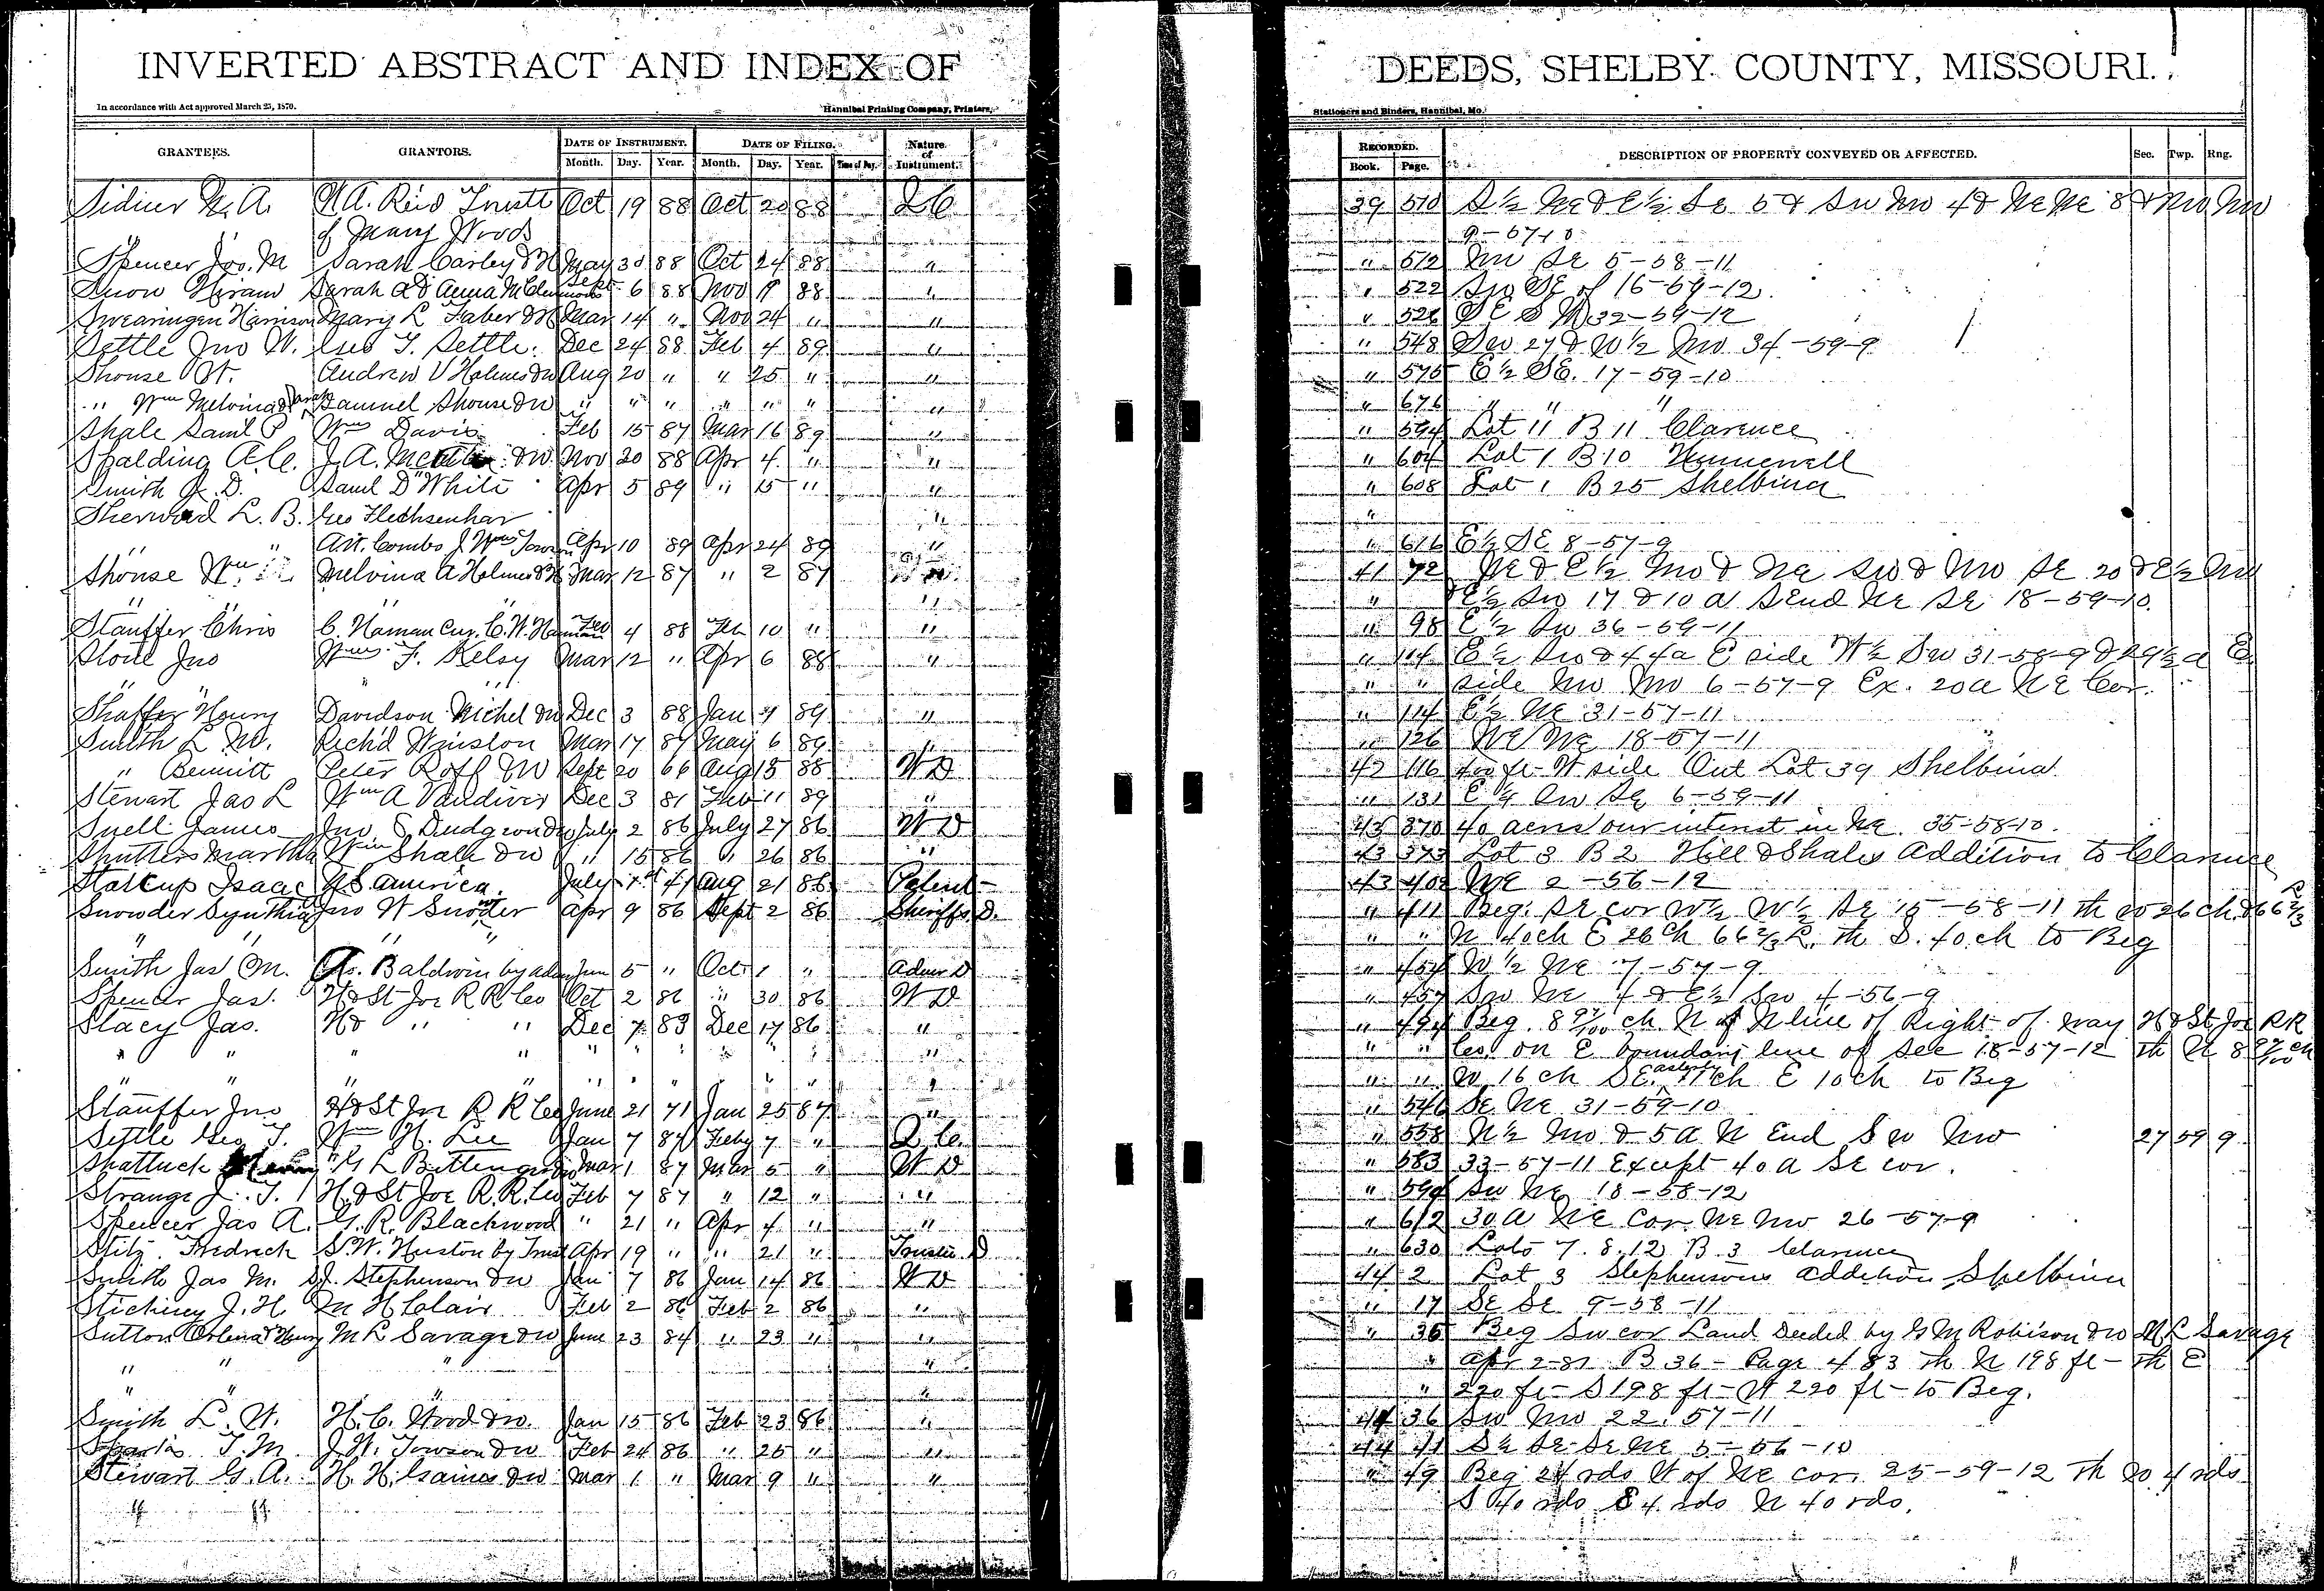 INVERTED ABSTRACT AND INDEX OF DEEDS, SHELBY COUNTY, MISSOURI.
In accordance with Act approved March 25, 1870. Hannibal Printing Company, Printers, Stationers and Binders, Hannibal, Mo.
GRANTEES. GRANTORS. DATE OF INSTRUMENT. DATE OF FILING. Nature of Instrument. RECORDED. DESCRIPTION OF PROPERTY CONVEYED OR AFFECTED. Sec. Twp. Rng.
Month. Day. Year. Month. Day. Year. Time of Day. Book. Page.
Sidner N. A. W A. Reid Trustt Oct 19 88 Oct 20 88 Q C 39 510 S ½ Ne & E ½ Se 5 & Sw Nw 4 & Ne Ne 8 & Nw Nw
" " of Mary Woods 9-57-10
Spencer Jos. M Sarah Carley & H May 30 88 Oct 24 88 " " 512 Nw Se 5-58-11
Snow Hiram Sarah A & Anna M Sept 6 88 Nov 88 " " 522 Sw SE of 16-59-12
Swearingen Harrison Mary L Faber & H Mar 14 " Nov 24 " " " 32-59-12
Settle Jno W. Geo T. Settle. Dec 24 88 Feb 4 89 " " 548 Sw 27 & W ½ Nw 34-59-9
Shouse W. Andrew V Holmes & w Aug 20 " " 25 " " " 575 E ½ SE. 17-59-10
" Wm Melvina & Sarah Samuel Shouse & w " " " " " " " " 676 " " "
Shale Saml P Wm Davis Feb 15 87 Mar 16 89 " " 594 Lot 11 B 11 Clarence
Spalding A. C. J. A. & w. Nov 20 88 Apr 4 " " " 604 Lot 1 B 10 Hunnewell
Smith J. D. Saml D White Apr 5 89 " 15 " " " 608 Lot 1 B 25 Shelbina
Sherwood L. B. Geo Flechsenhar " "
" " A. W. Combs J Wm Apr 10 89 Apr 24 89 " " 616 E ½ SE 8-57-9
Shouse Wm Melvina A Holmes & H Mar 12 87 " 2 87 " 41 72 Ne & E ½ Nw & Ne Sw & Nw Se 20 & E ½ Nw
" " " & E ½ Sw 17 & 10 a S End Ne Se 18-59-10.
Stauffer Chris C. Naman Cur. C. W. Feb 4 88 Feb 10 " " " 98 E ½ Sw 36-59-11
Stone Jno Wm F. Kelsy Mar 12 " Apr 6 88 " " 114 E ½ Sw & 44a E side W ½ Sw 31-58-9 & 29 ½ a E
" " " " side Nw Nw 6-57-9 Ex. 20 a N E Cor.
Shaffer Henry Davidson Michel & w Dec 3 88 Jan 4 89 " " 114 E ½ Ne 31-57-11
Smith L W. Richd Winslon Mar 17 87 May 6 89 " " 126 18-57-11
" Bennitt Peter Roff & w Sept 20 66 Aug 18 88 W D 42 116 400 ft W side Out Lot 39 Shelbina
Stewart Jas L Wm A Vandiver Dec 3 81 Feb 11 89 " " 131 E ¼ Sw Se 6-59-11
Snell James Jno S Dudgeon & w July 2 86 July 27 86 W D 43 370 40 acres our interest in Ne. 35-58-10.
Shutters Martha Wm Shale & w " 15 86 " 26 86 " 43 373 Lot 3 B 2 Hill & Shales Addition to Clarence
Stalcup Isaac U S. america July 41 Aug 21 86 Patent 43 402 NE 2-56-12
Snowder Synthia Jno W Snowder Apr 9 86 Sept 2 86 Sheriffs D. " 411 Beg. Se cor W ½ W ½ Se 15-58-11 th w 26 ch. & 66 ⅔
" " " " " " N 40 ch E 26 ch 66 ⅔ L. th S. 40 ch to Beg
Smith Jas M. Baldwin by adm Jun 5 " Oct 1 " Admr D " 454 W ½ Ne 7-57-9
Spencer Jas. H & St Joe R R Co Oct 2 86 " 30 86 W D " 457 Sw Ne 4 & E ½ Sw 4-56-9
Stacy Jas. H & " " Dec 7 83 Dec 17 86 " " 494 Beg. 8 97/100 ch N of N line of Right of way H & St Joe R R
" " " " " " " " " " " " " Co. on E boundary line of Sec 18-57-12 th N 8 97/100 ch
" " " " " " " " " " " " W 16 ch SEasterly 11 ch E 10 ch to Beg
Stauffer Jno H & St Joe R R Co June 21 71 Jan 25 87 " " 546 Se Ne 31-59-10
Settle Geo T. Wm H. Lee Jan 7 87 Feby 7 " Q C. " 558 N ½ Nw & 5 A N End S w Nw 27 59 9
Shattuck G L Bittenger & w Mar 1 87 Mar 5 " W D " 583 33-57-11 Except 40 a Se cor.
Strange J. T. H. & St Joe R. R. Co Feb 7 87 " 12 " " " 590 Sw Ne 18-58-12
Spencer Jas A. G. R. Blackwood " 21 " Apr 4 " " " 612 30 A N E Cor Ne Nw 26-57-9
Stitz Fredrick S. W. Huston by Trust Apr 19 " " 21 " Trustee D " 630 Lots 7. 8. 12 B 3 Clarence
Smith Jas M. S. J. Stephenson & w Jan 7 86 Jan 14 86 W D 44 2 Lot 3 Stephensons addition Shelbina
Stichney J. H M H Clair Feb 2 86 Feb 2 86 " " 17 SE Se 9-58-11
Sutton Orlena & Henry M L Savage & w June 23 84 " 23 " " " 35 Beg Sw cor Land Deeded by G M Robison & w M L Savage
" " " " " Apr 2-81 B 36 - Page 483 Th N 198 ft - th E
" " " " " 220 ft - S 198 ft - W 220 ft - to Beg.
Smith L. W. H. C. Wood & w. Jan 15 86 Feb 23 86 " 44 36 Sw Nw 22. 57-11
T. M. J. W. Towson & w Feb 24 86 " 25 " " 44 41 5-56-10
Stewart G. A. H. H. Gaines & w Mar 1 " Mar 9 " " " 49 Beg 24 rds W of Ne cor. 25-59-12 Th W 4 rds
" " S 40 rds E 4 rds N 40 rds.